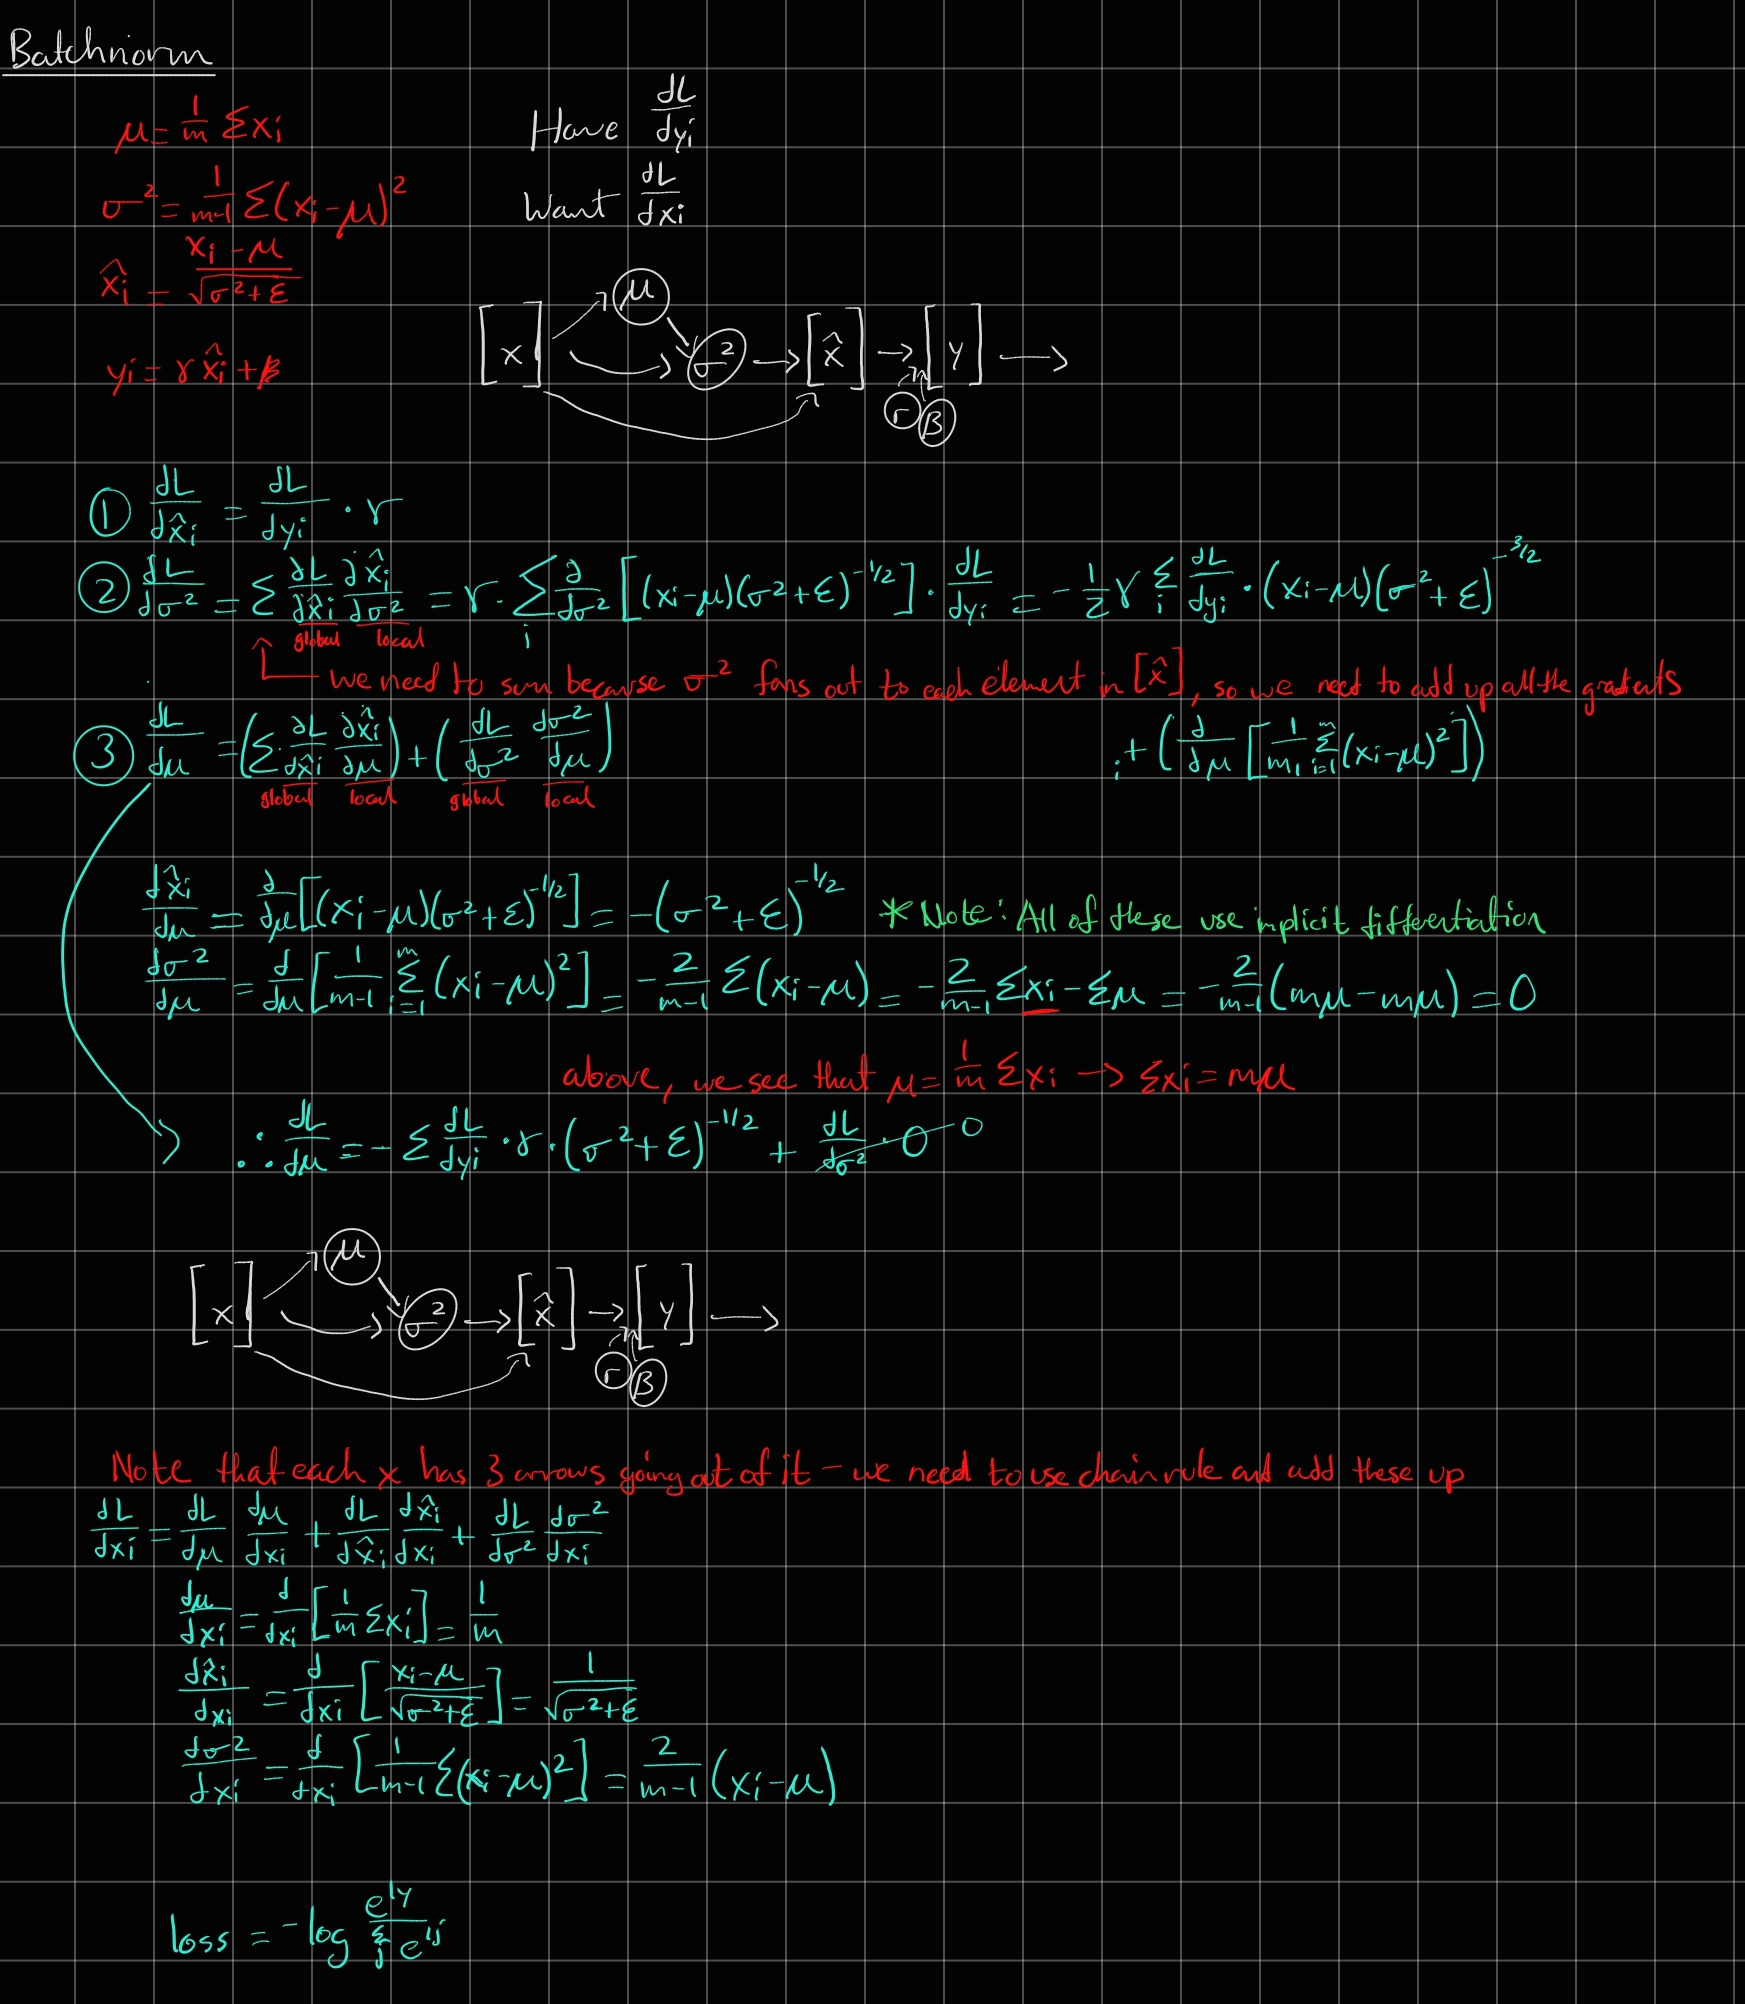 Batchnorm
μ = 1/m Σxi
Have dL/dyi
σ² = 1/m-1 Σ(xi-μ)²
Want dL/dxi
x̂i = xi-μ/√σ²+ε
yi = γx̂i + β
[x] μ σ² → [x̂] → [y] →
γ β
① dL/dx̂i = dL/dyi · γ
② dL/dσ² = Σ ∂L/∂x̂i ∂x̂i/∂σ² = γ · Σi ∂/∂σ² [(xi-μ)(σ²+ε)^-1/2] · dL/dyi = -1/2 γ Σi dL/dyi · (xi-μ)(σ²+ε)^-3/2
global local
we need to sum because σ² fans out to each element in [x̂], so we need to add up all the gradients
③ dL/dμ = (Σ ∂L/∂x̂i ∂x̂i/∂μ) + (dL/dσ² dσ²/dμ)
+ (d/dμ [1/m, Σi=1^m (xi-μ)²])
global local global local
dx̂i/dμ = ∂/∂μ [(xi-μ)(σ²+ε)^-1/2] = -(σ²+ε)^-1/2 * Note: All of these use implicit differentiation
dσ²/dμ = d/dμ [1/m-1 Σi=1^m (xi-μ)²] = -2/m-1 Σ(xi-μ) = -2/m-1 Σxi - Σμ = -2/m-1 (mμ-mμ) = 0
above, we see that μ = 1/m Σxi → Σxi = mμ
∴ dL/dμ = -Σ dL/dyi · γ · (σ²+ε)^-1/2 + dL/dσ² · 0 0
[x] μ σ² → [x̂] → [y] →
γ β
Note that each x has 3 arrows going out of it - we need to use chain rule and add these up
dL/dxi = dL/dμ dμ/dxi + dL/dx̂i dx̂i/dxi + dL/dσ² dσ²/dxi
dμ/dxi = d/dxi [1/m Σxi] = 1/m
dx̂i/dxi = d/dxi [xi-μ/√σ²+ε] = 1/√σ²+ε
dσ²/dxi = d/dxi [1/m-1 Σ(xi-μ)²] = 2/m-1 (xi-μ)
loss = -log e^ly/Σj e^lj